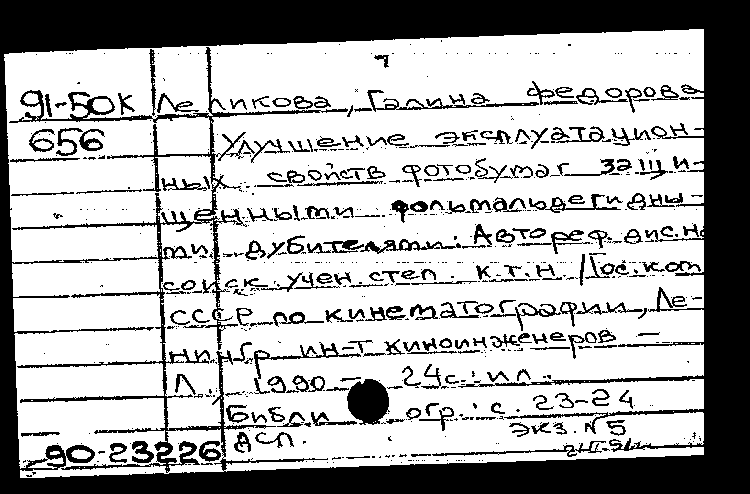 7
91-50К Леликова, Галина Федорова
656 Улучшение эксплуатацион-
ных свойств фотобумаг защи-
щенными фольмальдегидны-
ми дубителями: Автореф.дис.на
соиск.учен.степ. к.т.н. /Гос.ком
СССР по кинематографии, Ле-
нингр ин-т киноинженеров —
Л., 1990 — 24с.:ил.
Библи огр.: с. 23-24
90-23226 ДСП. Экз. №5